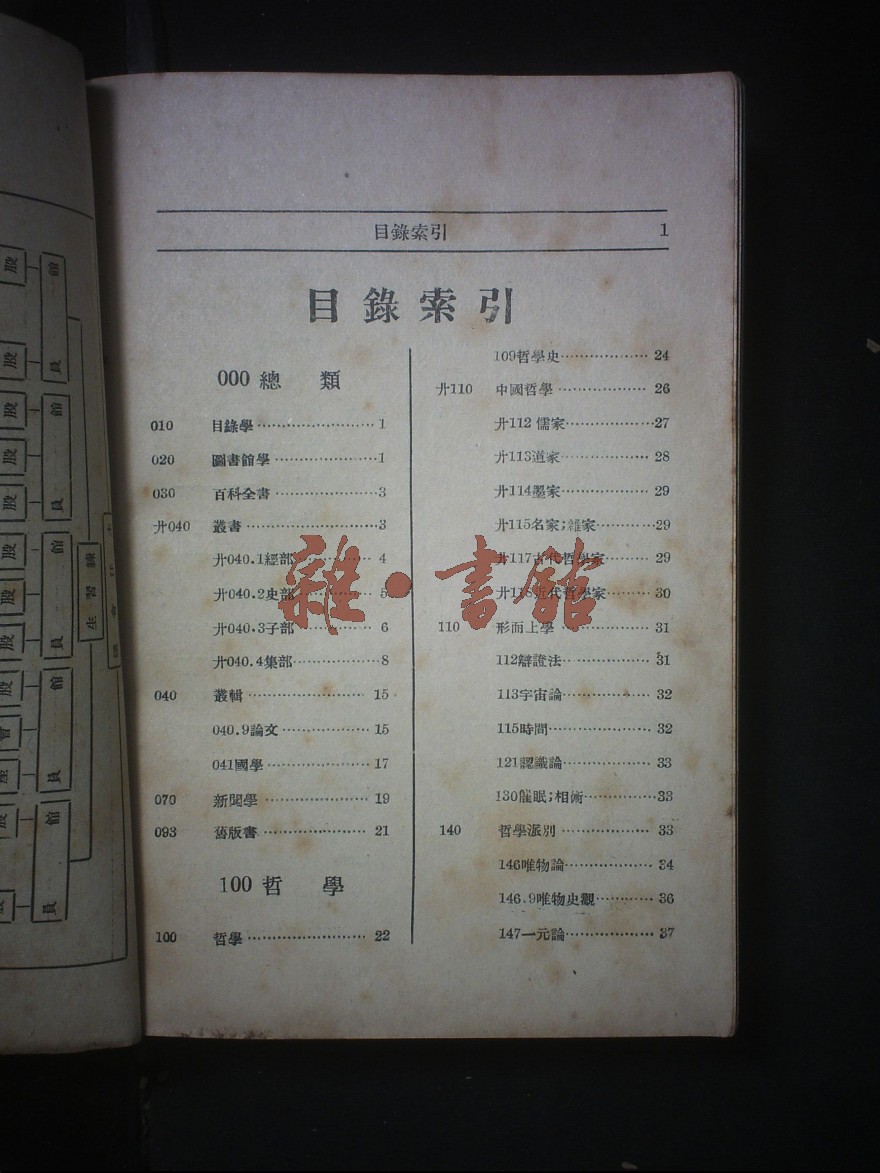 目錄索引 1
目錄索引
000 總類
010 目錄學 1
020 圖書館學 1
030 百科全書 3
廾040 叢書 3
廾040.1經部 4
廾040.2史部 5
廾040.3子部 6
廾040.4集部 8
040 叢輯 15
040.9論文 15
041國學 17
070 新聞學 19
093 舊版書 21
100 哲學
100 哲學 22
109哲學史 24
廾110 中國哲學 26
廾112 儒家 27
廾113道家 28
廾114墨家 29
廾115名家;雜家 29
廾117古代哲學家 29
廾118近代哲學家 30
110 形而上學 31
112辯證法 31
113宇宙論 32
115時間 32
121認識論 33
130催眠;相術 33
140 哲學派別 33
146唯物論 34
146.9唯物史觀 36
147一元論 37
雜·書館
館員
館員
館員
館員
館員
練習生
股
股
股
股
股
股
股
股